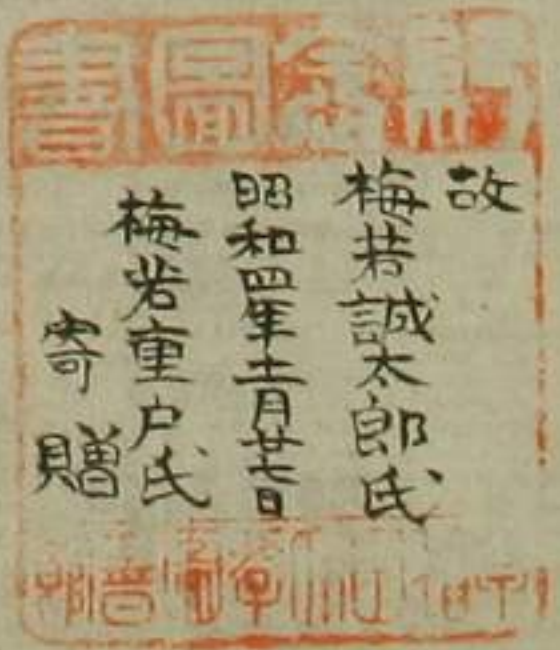 圖書
故
梅若誠太郎氏
昭和四年十一月廿七日
梅若重戸氏
寄贈